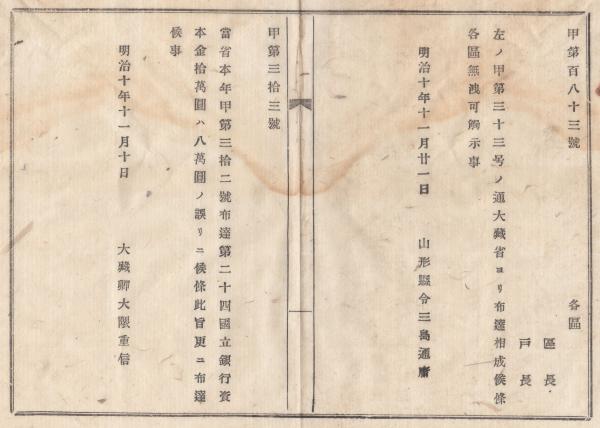 甲第百八十三號
各區
區長
戸長
左ノ甲第三十三号ノ通大藏省ヨリ布達相成候條
各區無洩可觸示事
明治十年十一月廿一日
山形縣令三島通庸
甲第三拾三號
當省本年甲第三拾二號布達第二十四國立銀行資
本金拾萬圓ハ八萬圓ノ誤リニ候條此旨更ニ布達
候事
明治十年十一月十日
大藏卿大隈重信